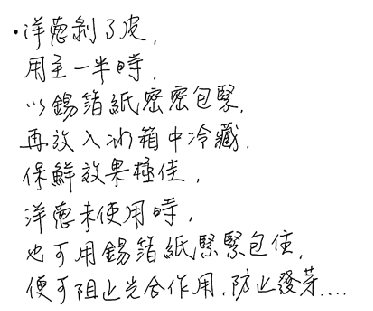 ·洋蔥剝了皮,
用至一半時,
以錫箔紙密密包緊,
再放入冰箱中冷藏.
保鮮效果極佳,
洋蔥未使用時,
也可用錫箔紙緊緊包住,
便可阻止光合作用.防止發芽....